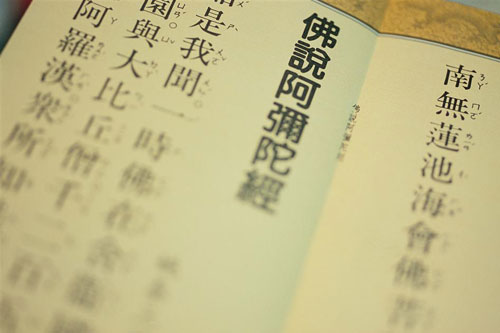 南無蓮池海會佛菩
佛說阿彌陀經
是我聞。一時佛在舍衛
園與大比丘僧千二百
阿羅漢眾所知